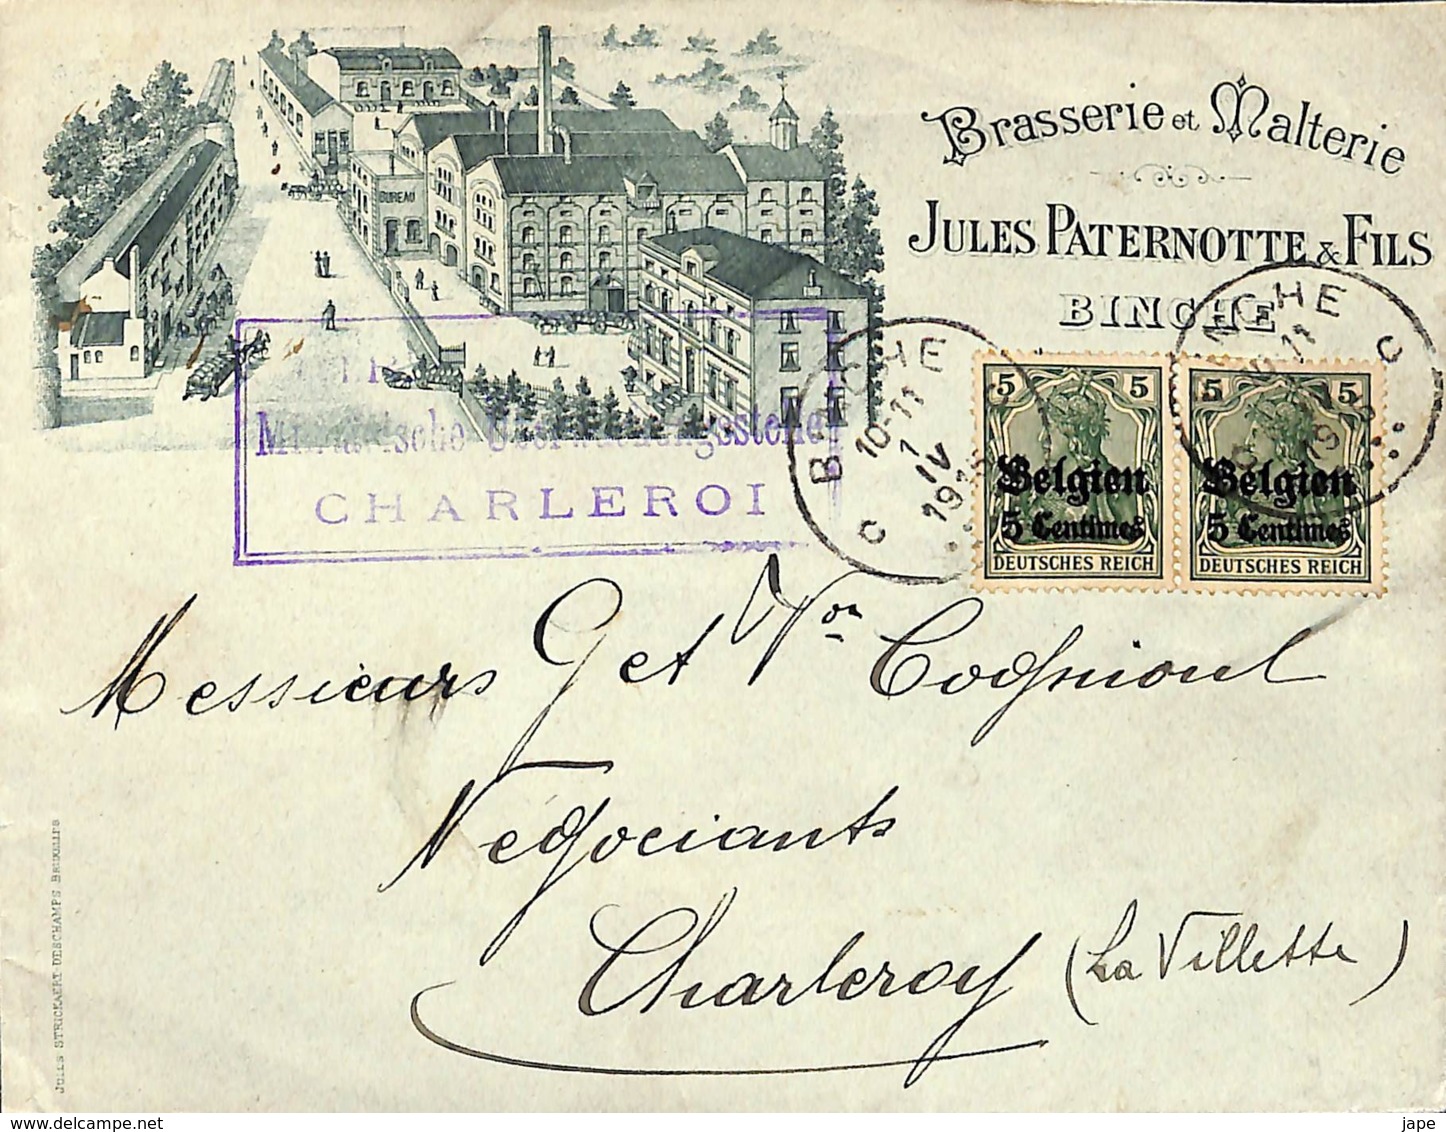 Brasserie et Malterie
JULES PATERNOTTE & FILS
BINCHE
BUREAU
Militärische Überwachungsstelle
CHARLEROI
BINCHE
10-11
1
IV
C
BINCHE
10-11
C
5 5
Belgien
5 Centimes
DEUTSCHES REICH
5 5
Belgien
5 Centimes
DEUTSCHES REICH
Messieurs G et Von
Négociants
Charleroy (La Villette)
JULES STRICKAERT DESCHAMPS BRUXELLES
delcampe.net
jape